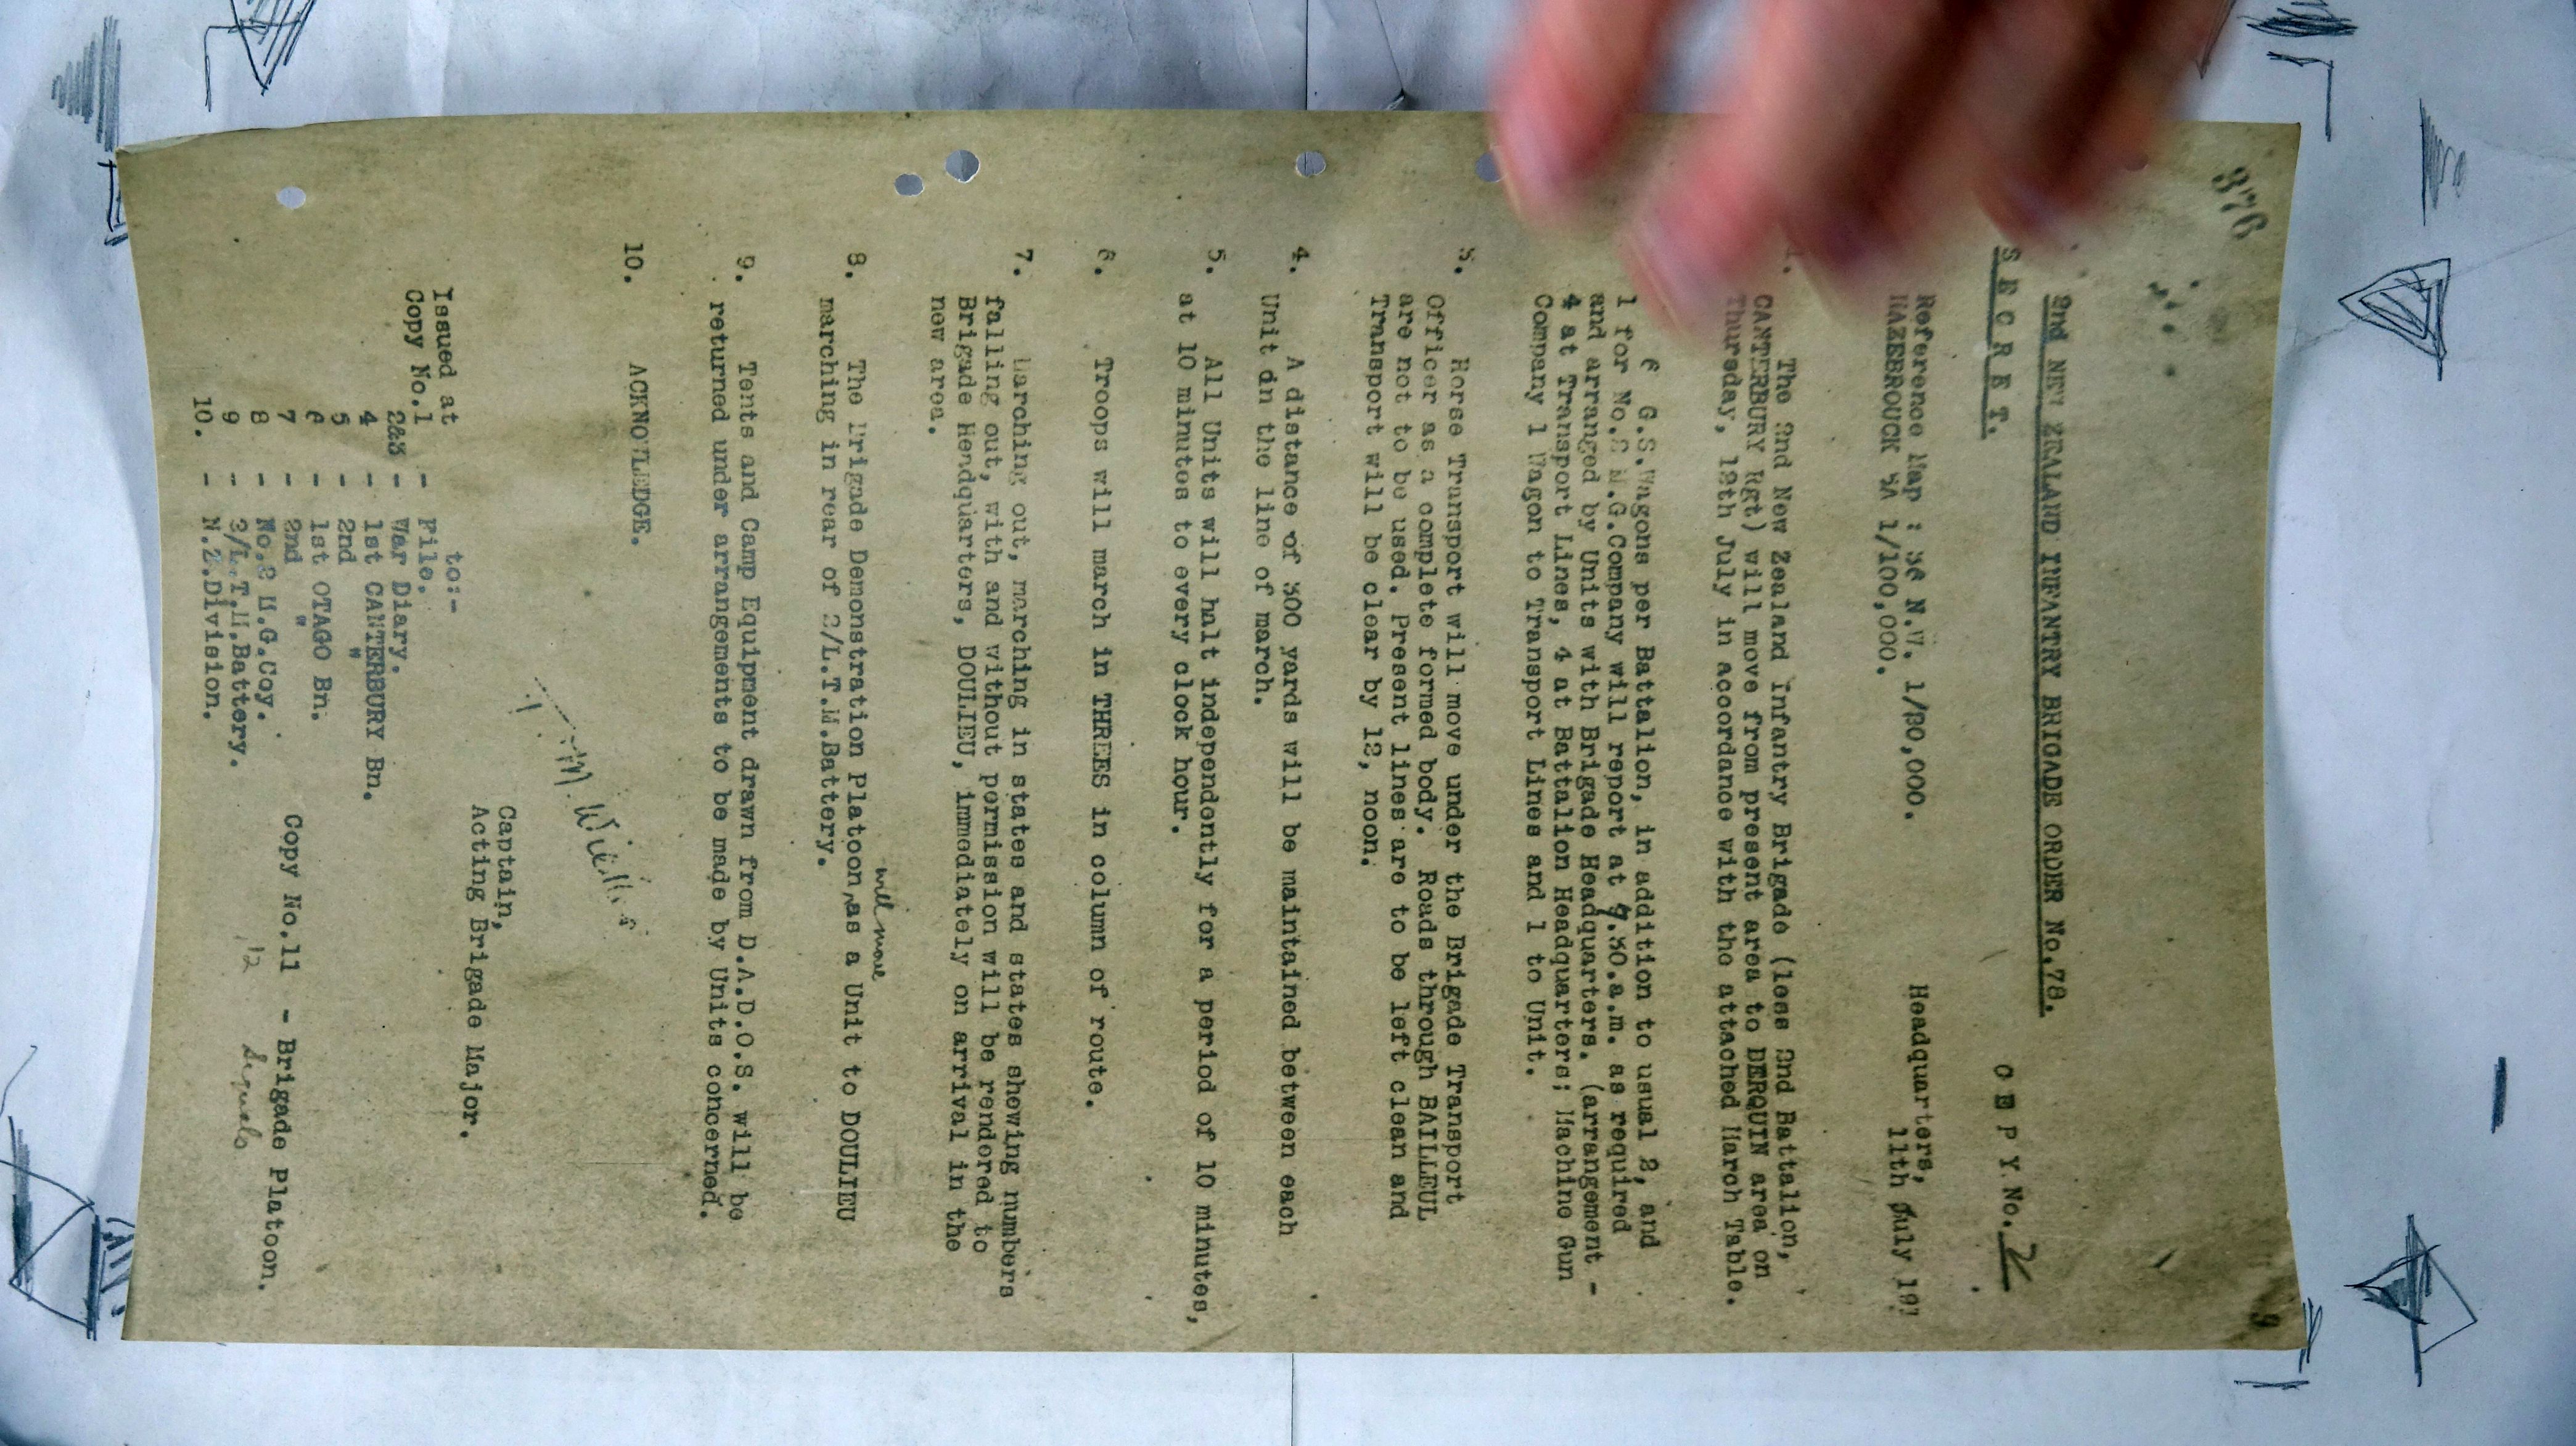 376
9
2nd NEW ZEALAND INFANTRY BRIGADE ORDER No.78.
S E C R E T.
C O P Y No. 2
Reference Map : 36 N.W. 1/20,000.
HAZEBROUCK 5A 1/100,000.
Headquarters,
11th July 191
The 2nd New Zealand Infantry Brigade (less 2nd Battalion,
CANTERBURY Rgt) will move from present area to BERQUIN area on
Thursday, 12th July in accordance with the attached March Table.
6 G.S.Wagons per Battalion, in addition to usual 2, and
1 for No.2 M.G.Company will report at 9.30.a.m. as required
and arranged by Units with Brigade Headquarters. (arrangement -
4 at Transport Lines, 4 at Battalion Headquarters; Machine Gun
Company 1 Wagon to Transport Lines and 1 to Unit.
3. Horse Transport will move under the Brigade Transport
Officer as a complete formed body. Roads through BAILLEUL
are not to be used. Present lines are to be left clean and
Transport will be clear by 12, noon.
4. A distance of 300 yards will be maintained between each
Unit in the line of march.
5. All Units will halt independently for a period of 10 minutes,
at 10 minutes to every clock hour.
6. Troops will march in THREES in column of route.
7. Marching out, marching in states and states showing numbers
falling out, with and without permission will be rendered to
Brigade Headquarters, DOULIEU, immediately on arrival in the
new area.
will move
8. The Brigade Demonstration Platoon as a Unit to DOULIEU
marching in rear of 2/L.T.M.Battery.
9. Tents and Camp Equipment drawn from D.A.D.O.S. will be
returned under arrangements to be made by Units concerned.
10. ACKNOWLEDGE.
Captain,
Acting Brigade Major.
Issued at to:-
Copy No.1 - File.
2&3 - War Diary.
4 - 1st CANTERBURY Bn.
5 - 2nd "
6 - 1st OTAGO Bn.
7 - 2nd "
8 - No.2 M.G.Coy.
9 - 2/L.T.M.Battery.
10. - N.Z.Division.
Copy No.11 - Brigade Platoon.
12 Signals